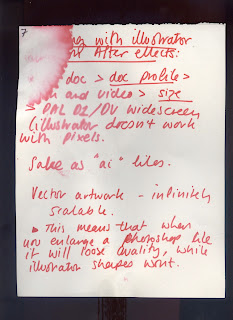 7
with illustrator
After effects:
doc > doc profile >
and video > size
> PAL D1/DV widescreen
(illustrator doesnt work
with pixels.
Save as "ai" files.
Vector artwork - infinitely
scalable.
• This means that when
you enlarge a photoshop file
it will loose quality, while
illustrator shapes wont.